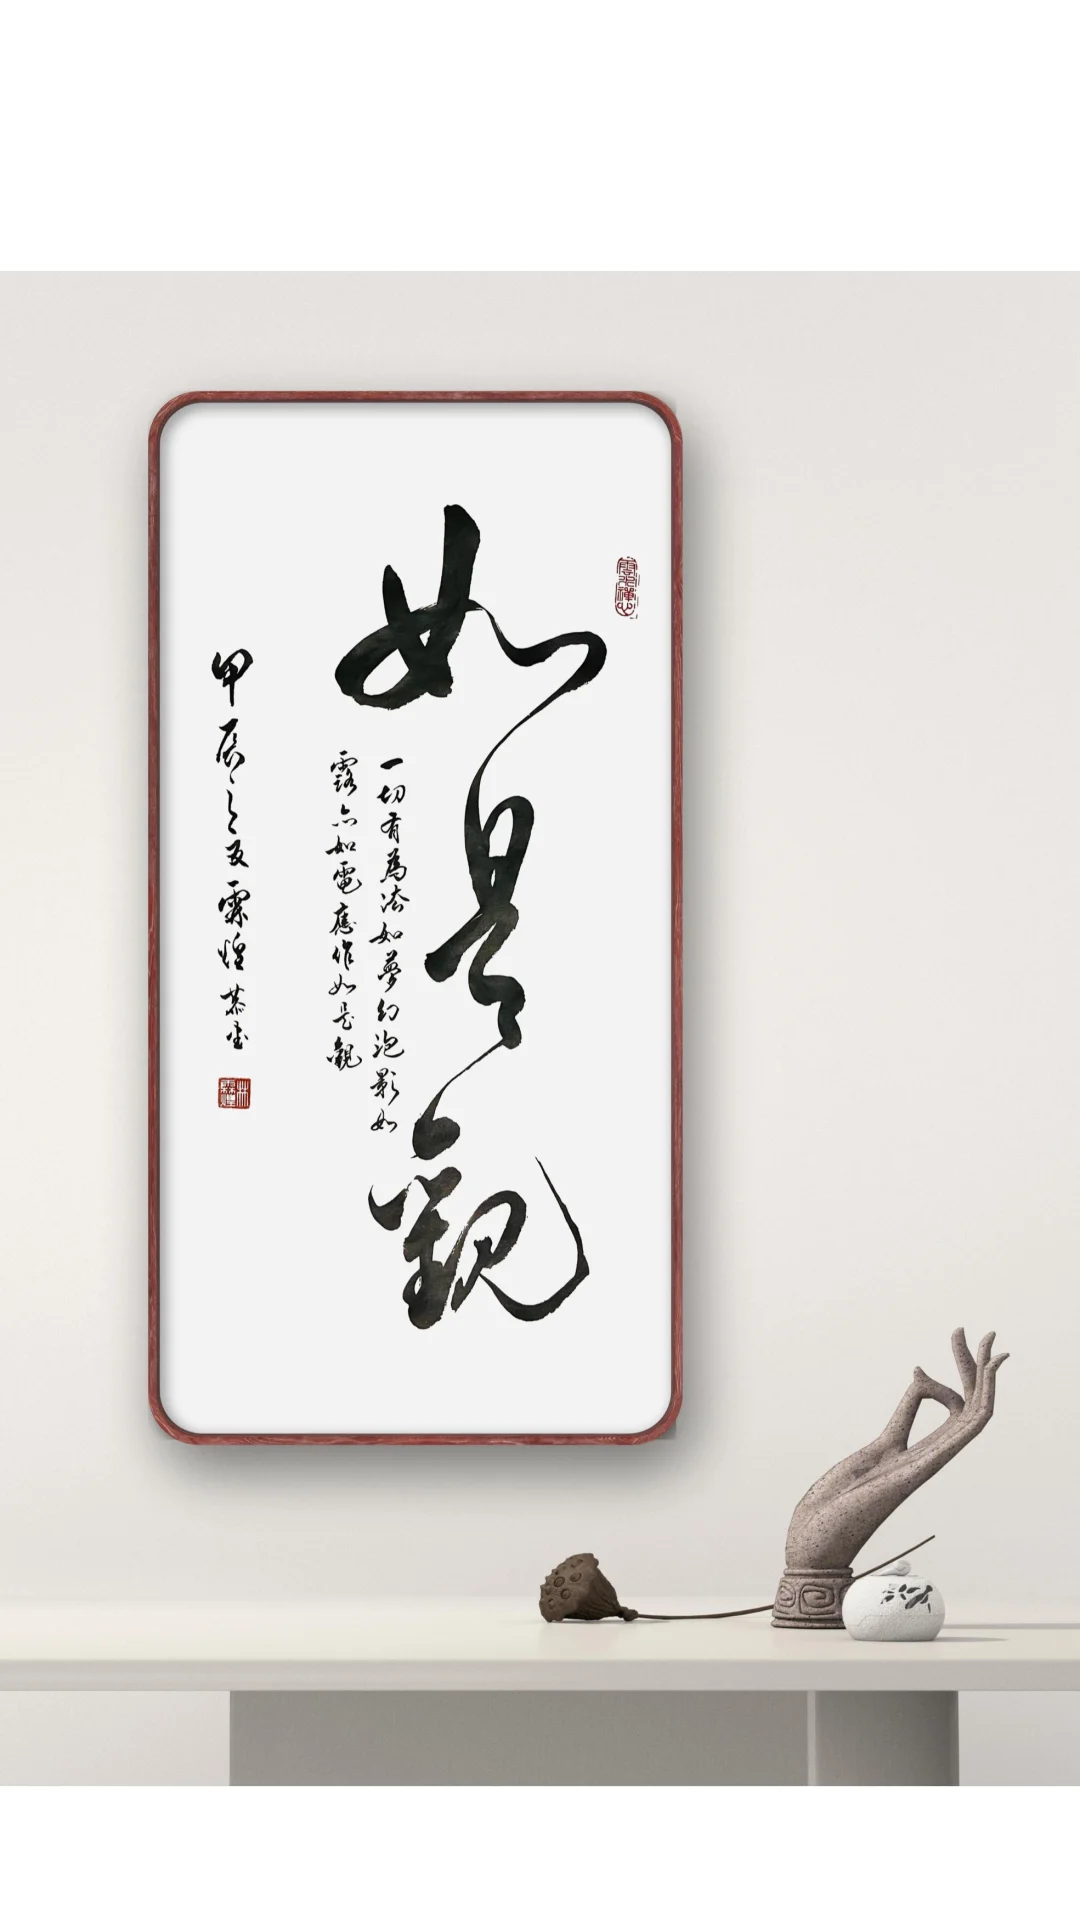 如是觀
一切有為法如夢幻泡影如
露亦如電應作如是觀
甲辰之夏霖煌恭書